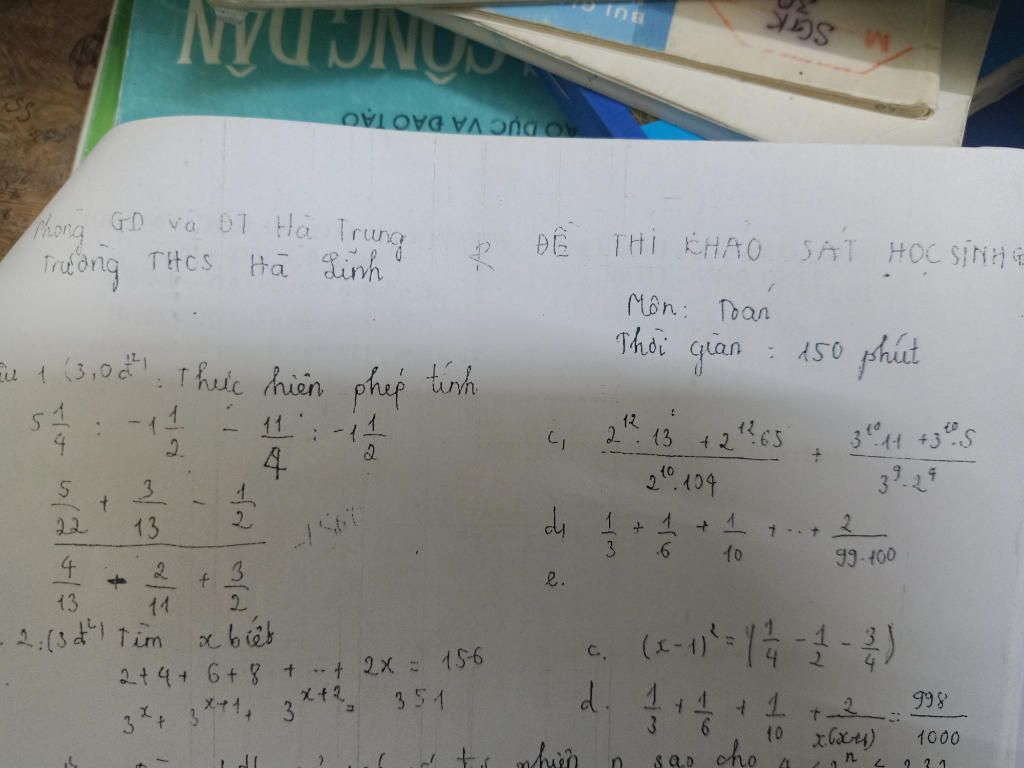 CÔNG DÂN
BÙI
SGK
30
M
DỤC VÀ ĐÀO TẠO
Phòng GD và ĐT Hà Trung
Trường THCS Hà Lĩnh
ĐỀ THI KHẢO SÁT HỌC SINH G
Môn: Toán
Thời gian : 150 phút
1 (3,0 đ): Thực hiện phép tính
5 1/4 : -1 1/2 - 11/4 : -1 1/2
c, (2^12 . 13 + 2^12 . 65)/(2^10 . 104) + (3^10 . 11 + 3^10 . 5)/(3^9 . 2^4)
(5/22 + 3/13 - 1/2)/(4/13 - 2/11 + 3/2)
d, 1/3 + 1/6 + 1/10 + ... + 2/(99.100)
e.
2: (3đ) Tìm x biết
2+4+6+8 + ... + 2x = 156
3^x + 3^(x+1) + 3^(x+2) = 351
c. (x-1)^2 = (1/4 - 1/2 - 3/4)
d. 1/3 + 1/6 + 1/10 + 2/(x(x+1)) = 998/1000
nhiên n sao cho